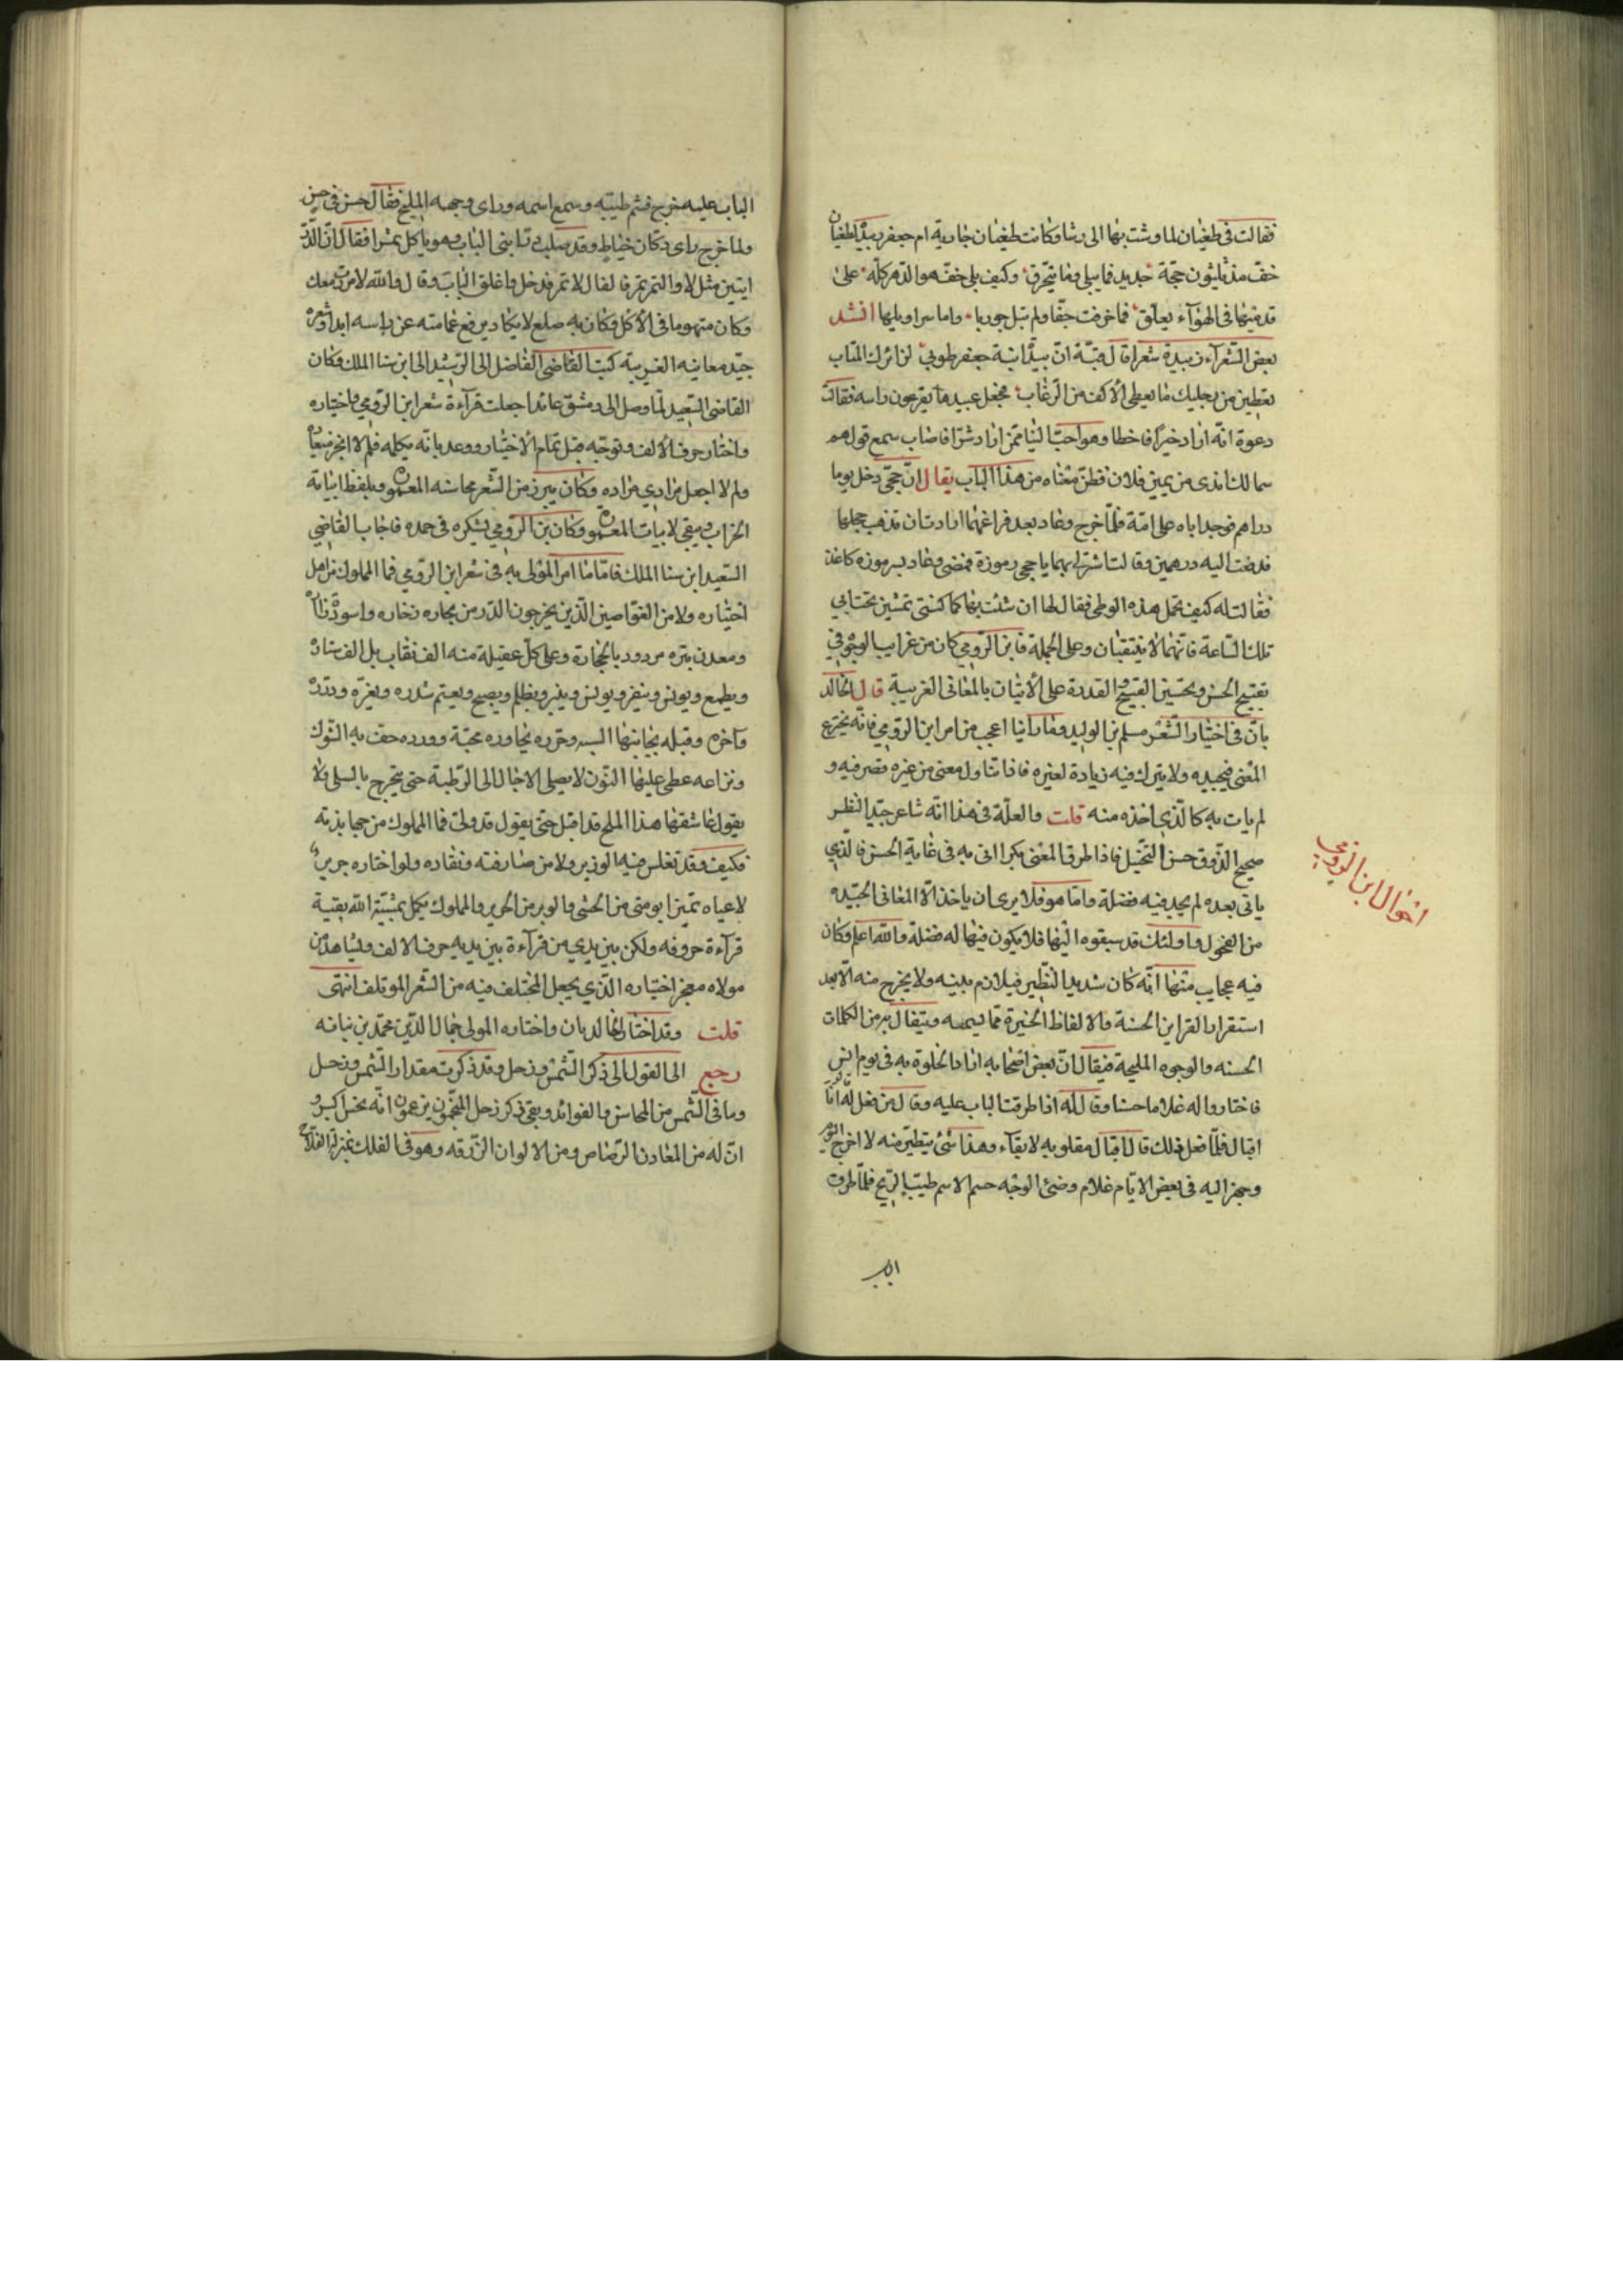 فقالت فى طغيان لما وشت بها الى رشا وكانت طغيان جارية ام جعفر
خف مذ ثلثون حجّة جديد فما يبلى وما يتخرّق وكيف بلى خفّ هو الدّهر كلّه على
قدميها فى الهوآء يعلّق فما خرقت خفّا ولم تبل جوربا واما سراويلها انشد
بعض الشّعرآء زبيدة شعرا قال فيه ازبيدة ابنة جعفر طوبى لزائرك المثاب
تعطين من رجليك ما يعطى الاكف من الرّغاب فجعل عبيدها يقرعون راسه فقالت
دعوه انّه اراد خيرا فاخطا وهو احبّ الينا ممّن اراد شرّا فاصاب سمع قولهم
شمالك اندى من يمين فلان فظنّ معناه من هذا الباب يقال انّ جحى دخل يوما
فوجد اباه على امّه فلمّا خرج وعاد بعد فراغهما ارادت ان تذهب خجلها
فدفعت اليه درهمين وقالت اشتر لى بهما يا جحى رموزة فمضى وعاد بسرموزه كاغذ
فقالت له كيف تحمل هذه الوطى فقال لها ان شئت بها كما كنتى تمشين تحت ابى
تلك السّاعة فانّهما لا ينتقبان وعلى الجملة فابن الرّومى كان من غرايب الوجود فى
تقبيح الحسن وتحسين القبيح والقدرة على الاتيان بالمعانى الغريبة قال الخالد
يان فى اختيار الشّعر مسلم بن الوليد وما راينا اعجب من امر ابن الرّومى فانّه يخترع
المعنى فيجيده ولا يترك فيه زيادة لغيره فاذا تناول معنى من غيره قصر فيه و
لم يات به كالّذى اخذه منه قلت والعلّة فى هذا انّه شاعر جيّد النظر
صحيح الذّوق حسن التخيّل فاذا طرق المعنى بكرا اتى به فى غاية الحسن فالّذى
ياتى بعده لم يجد فيه فضلة وامّا هو فلا يرى ان ياخذ الّا المعانى الجيّده
من الفحول واولئك قد سبقوه اليها فلا يكون فيها له فضلة والله اعلم وكان
فيه عجايب منها انّه كان شديد التّطيّر فيلازم بيته ولا يخرج منه الّا بعد
استقراء القراين الحسنة والالفاظ الخيّرة ممّا يسمعه ويتفال به من الكلمات
الحسنه والوجوه المليحة فيقال انّ بعض اصحابه اراد الخلوة به فى يوم انس
فاختاروا له غلاما حسنا وقال له اذا طرقت الباب عليه وقال من فقل له انا
اقبال فلمّا فعل ذلك قال اقبال مقلوبه لا بقآء وهذا شئ يتطيّر منه لا اخرج اليوم
وجهز اليه فى بعض الايّام غلام وضئ الوجه حسن الاسم طيّب الرّيح فلمّا طرق
الباب
احوال ابن الرومى
الباب عليه خرج فشم طيبه وسمع اسمه وراى وجهه المليح فقال حسن فى حسن
ولما خرج راى دكّان خيّاط وقد صلب درّابتى الباب وهو ياكل تمرا فقال انّ الدّرّ
ابتين مثل لا والتمر تمر فالفال لا تمر فدخل واغلق الباب وقال والله لا مررت معك
وكان منهوما فى الاكل وكان به صلع لا يكاد يرفع عمامته عن راسه ابدا ومن
جيّد معانيه الغريبة كتب القاضى الفاضل الى الرّشيد الى ابن سنا الملك وكان
القاضى السّعيد لمّا وصل الى دمشق عائدا جعلت قرآءة شعر ابن الرّومى واختياره
واختار حرف الالف وتوجّه قبل تمام الاختيار ووعد بانّه يكمله فلم لا انجز ميعاده
ولم لا اجعل مرادى مراده وكان يبرز من الشّعر محاسنه المعمور ويلفظ ابياته
الخراب ويبقى لابيات المعمور وكان ابن الرّومى يشكره فى لحده فاجاب القاضى
السّعيد ابن سنا الملك فامّا ما امر المولى به فى شعر ابن الرّومى فما المملوك من اهل
اختياره ولا من الغوّاصين الّذين يخرجون الدّرر من بحاره زخاره واسوده زأآره
ومعدن تبره مردود بالحجارة وعلى كلّ عقيلة منه الف نقاب بل الف ستارة
ويطمع ويونس وينفر ويونس وينير ويظلم ويصبح ويعتم شذره ودرّه
وآجره وقبله بجانبها السبه وحرّه بجاوره محبّة وورده حفّ به الشّوك
وبراعه غطى عليها النّون لا يصل الاجال الى الرّطبة حتى يتجرح بالسلى ولا
يقول عاشقها هذا الملح قد اقبل حتى يقول قد ولّى فما المملوك من جهابذته
فكيف وقد تغلّس فيه الوزير ولا من صيارفته ونقّاده ولو اختاره جرير
لاعياه تمييز الخيش من الوشى والوبر من الحرير والمملوك يكمل بمشيّة الله بقيّة
قرآءة حروفه ولكن بين يدى من قرآءة بين يديه حرف الالف وليشاهد من
مولاه معجز اختياره الّذى يجعل المختلف فيه من الشّعر المؤتلف انتهى
قلت وقد اختار الخالديان واختاره المولى جمال الدّين محمّد بن نباته
رجع الى القول الى ذكر الشّمس وزحل وقد ذكرت مقدار الشّمس وزحل
وما فى الشّمس من المحاسن والفوائد وبقى ذكر زحل المنجّمون يزعمون انّه نحس اكبر و
انّ له من المعادن الرّصاص ومن الالوان الزّرقه وهو فى الفلك بمنزلة الفلّاح